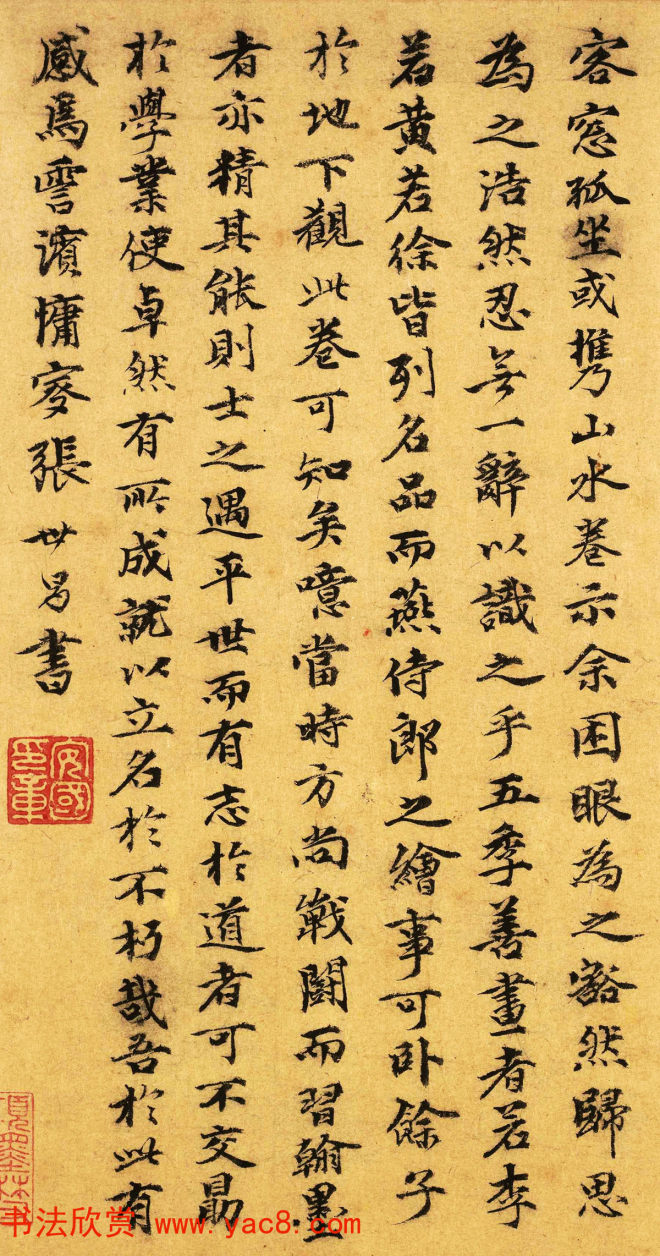 客窓孤坐或携山水卷示余困眼為之豁然歸思
為之浩然忍無一辭以識之乎五季善畫者若李
若黃若徐皆列名品而燕侍郎之繪事可卧餘子
於地下觀此卷可知矣噫當時方尚戰鬪而習翰墨
者亦精其能則士之遇平世而有志於道者可不交勗
於學業使卓然有所成就以立名於不朽哉吾於此有
感焉霅濱慵叟張世昌書
安國印章
书法欣赏 www.yac8.com